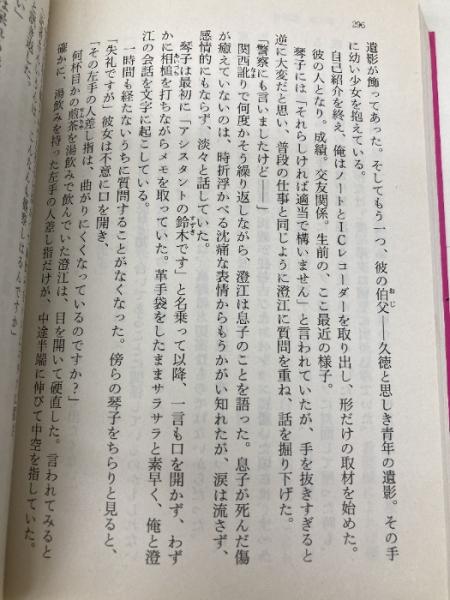 296
遺影が飾ってあった。そしてもう一つ、彼の伯父――久徳と思しき青年の遺影。その手
に幼い少女を抱えている。
自己紹介を終え、俺はノートとICレコーダーを取り出し、形だけの取材を始めた。
彼の人となり。成績。交友関係。生前の、ここ最近の様子。
琴子には「それらしければ適当で構いません」と言われていたが、手を抜きすぎると
逆に大変だと思い、普段の仕事と同じように澄江に質問を重ね、話を掘り下げた。
「警察にも言いましたけど――」
関西訛りで何度かそう繰り返しながら、澄江は息子のことを語った。息子が死んだ傷
が癒えていないのは、時折浮かべる沈痛な表情からもうかがい知れたが、涙は流さず、
感情的にもならず、淡々と話していた。
琴子は最初に「アシスタントの鈴木です」と名乗って以降、一言も口を開かず、わず
かに相槌を打ちながらメモを取っていた。革手袋をしたままサラサラと素早く、俺と澄
江の会話を文字に起こしている。
一時間も経たないうちに質問することがなくなった。傍らの琴子をちらりと見ると、
「失礼ですが」彼女は不意に口を開き、
「その左手の人差し指は、曲がりにくくなっているのですか?」
何杯目かの煎茶を湯飲みで飲んでいた澄江は、目を開いて硬直した。言われてみると
確かに、湯飲みを持った左手の人差し指だけが、中途半端に伸びて中空を指していた。